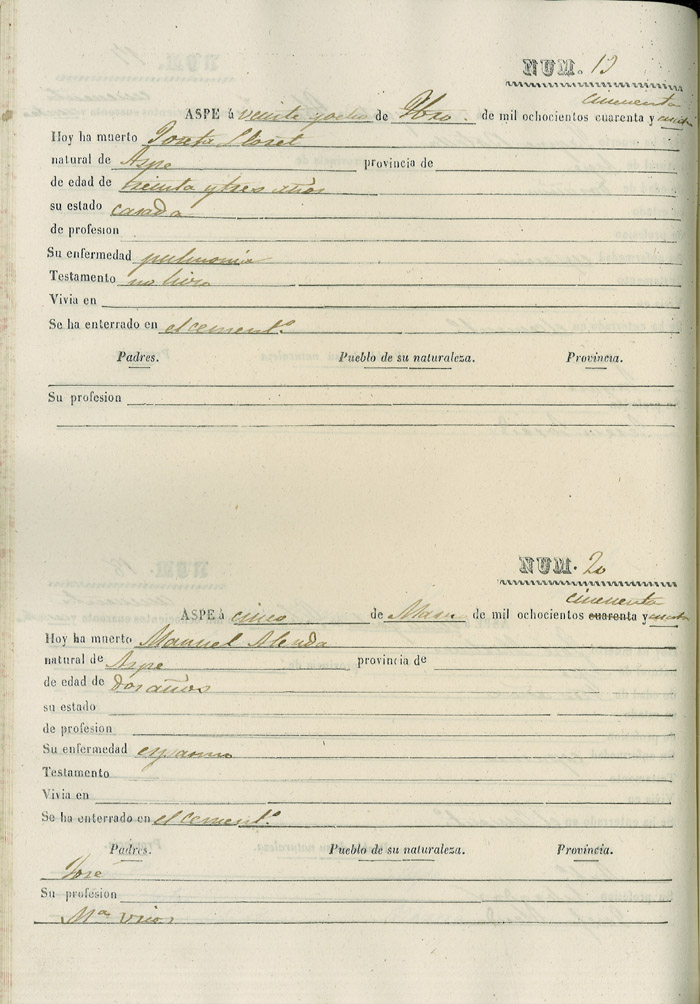 NUM. 19
cincuenta
ASPE á veinte yocho de Fbro. de mil ochocientos cuarenta y
Hoy ha muerto Josefa Lloret
natural de Aspe provincia de
de edad de treinta y tres años
su estado casada
de profesion
Su enfermedad pulmonia
Testamento no hizo
Vivia en
Se ha enterrado en el cement.º
Padres. Pueblo de su naturaleza. Provincia.
Su profesion
NUM. 20
cincuenta
ASPE á cinco de Marzo de mil ochocientos cuarenta y
Hoy ha muerto Manuel Alenda
natural de Aspe provincia de
de edad de dos años
su estado
de profesion
Su enfermedad espasmo
Testamento
Vivia en
Se ha enterrado en el cement.º
Padres. Pueblo de su naturaleza. Provincia.
Jose
Su profesion
Mª